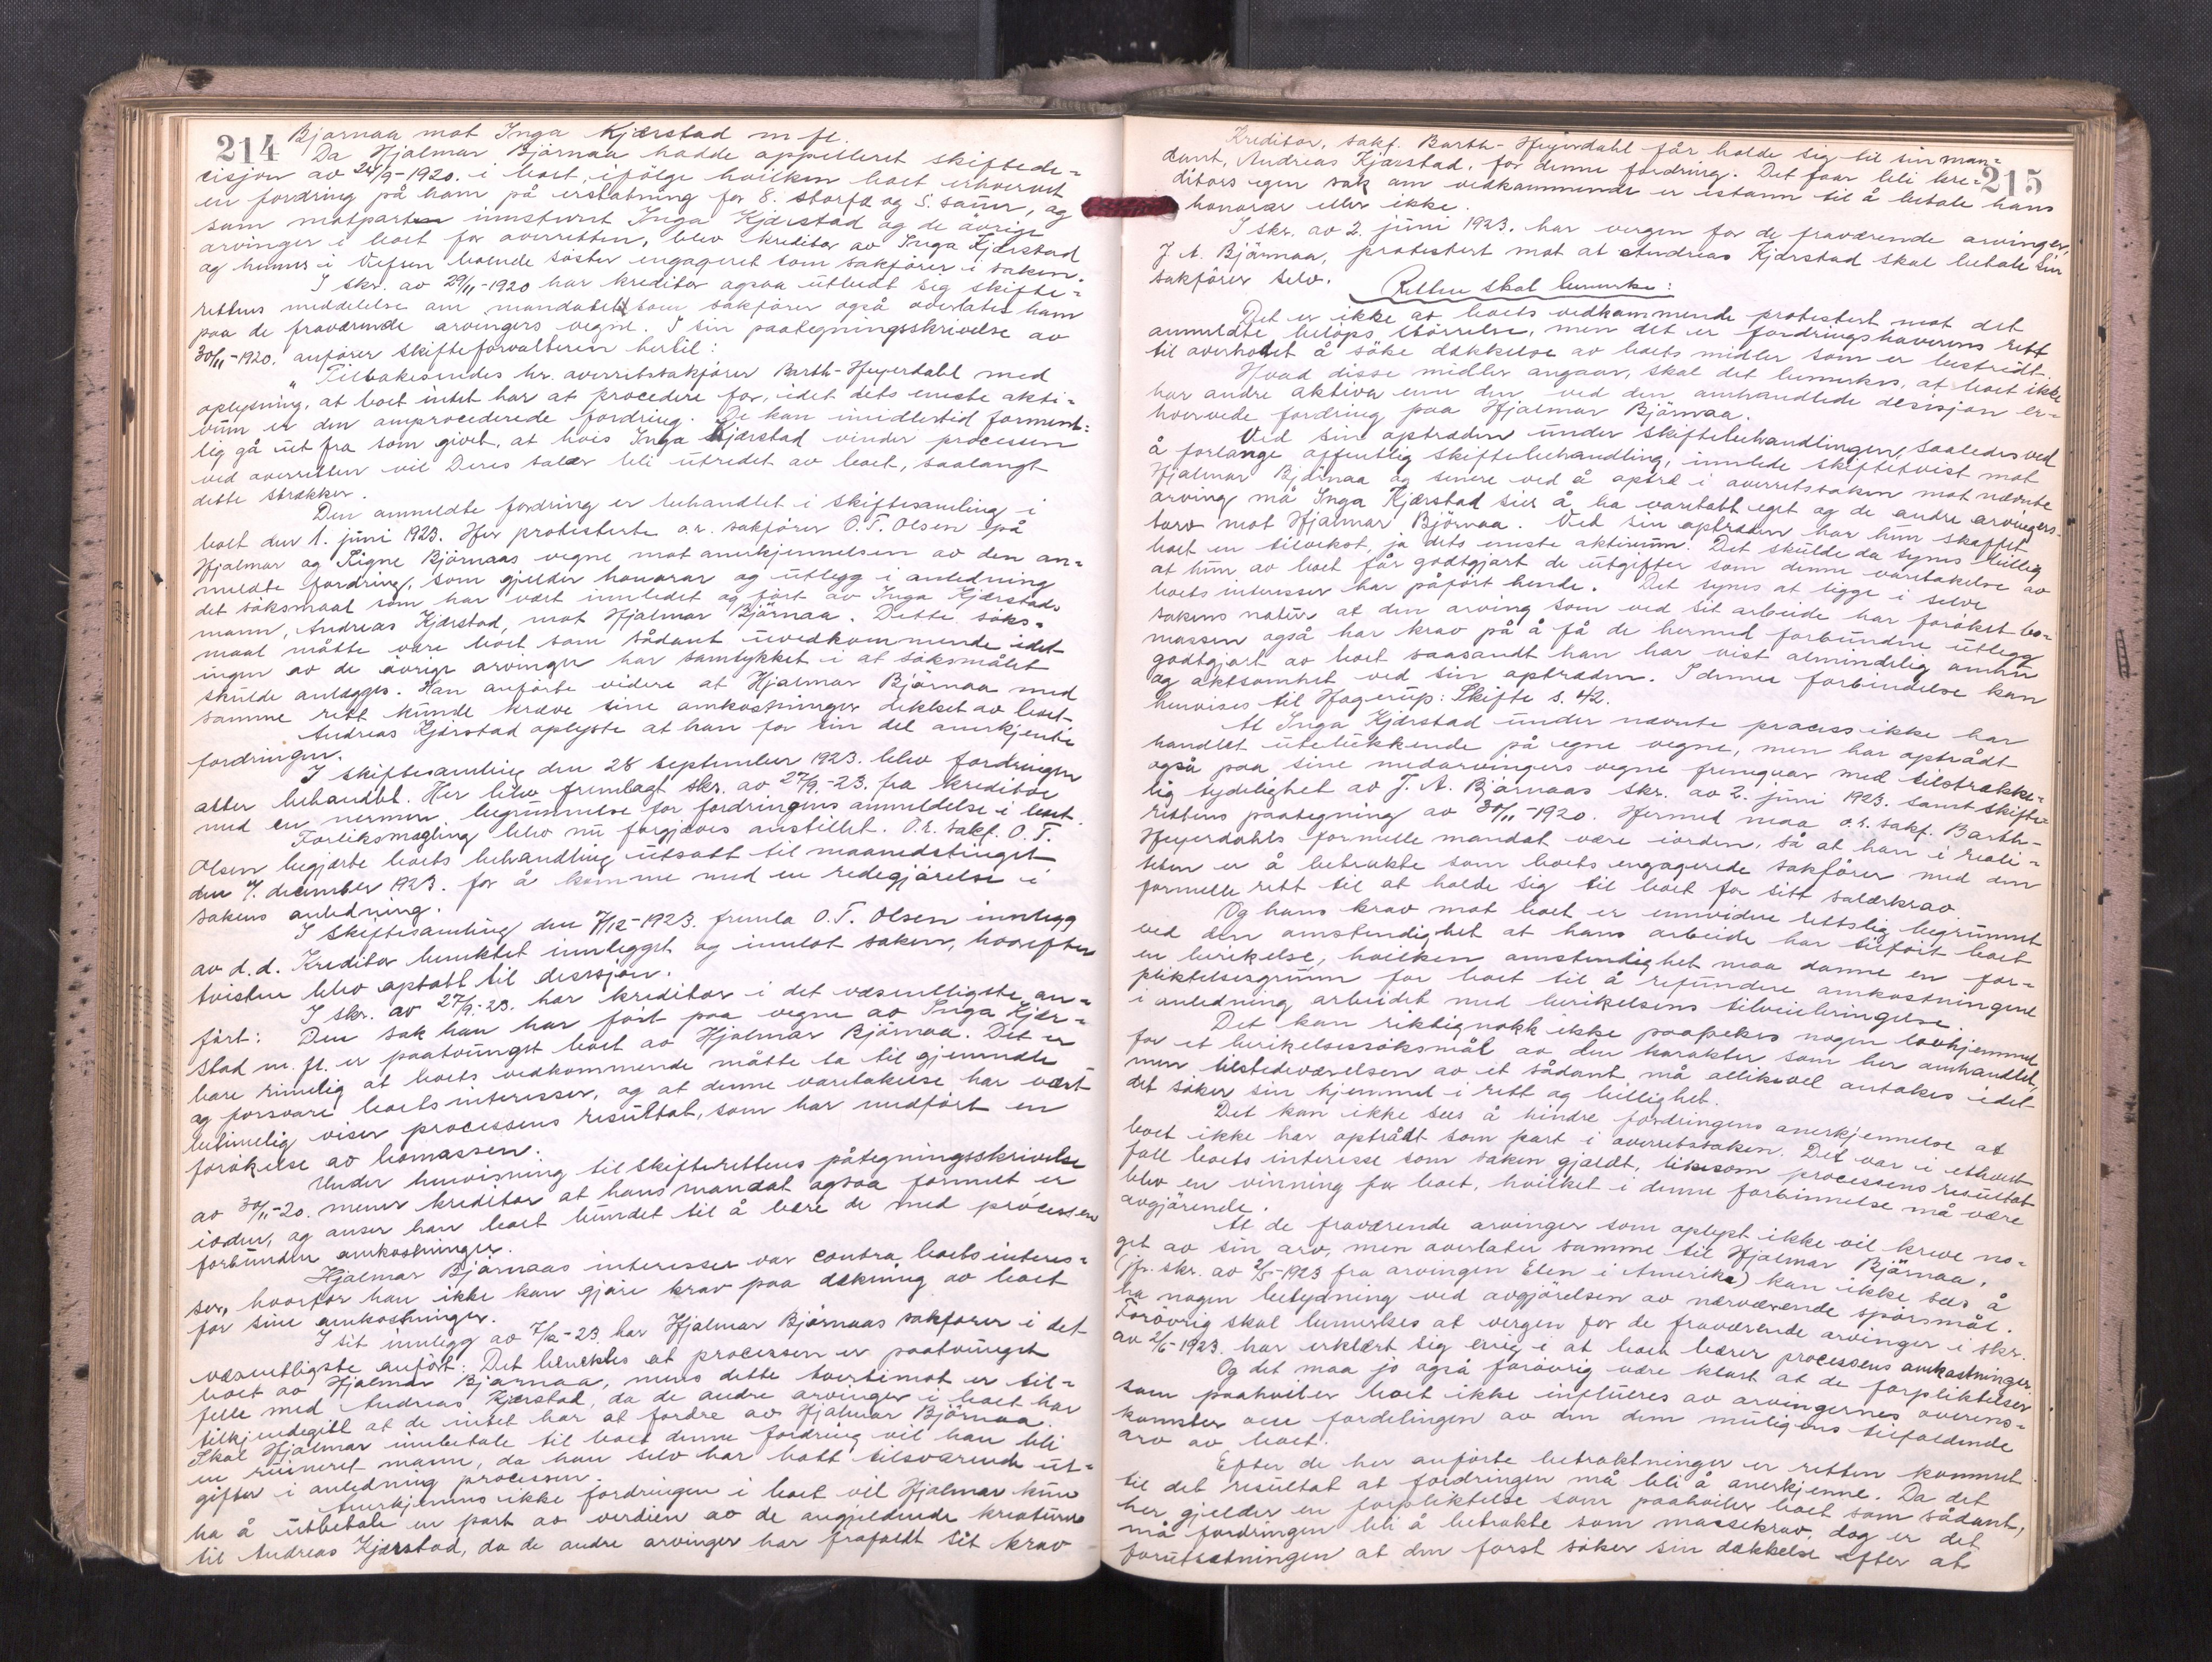 214
Bjørnaa mot Inga Kjærstad m fl.
Da Hjalmar Björnaa hadde appelleret skiftede=
cisjon av 24/9-1920. i boet, ifölge hvilken boet erhvervet
en fordring på ham på erstatning for 8. storfæ og 5. sauer, og
som motparten innstevnt Inga Kjærstad og de övrige
arvinger i boet for overretten, blev kreditor av Inga Kjærstad
og hennes i Vefsen boende söster engageret som sakförer i saken.
I skr. av 29/11-1920 har kreditor ogsaa utbedt sig skifte=
rettens meddelelse om mandatet som sakförer også overlates ham
paa de fraværende arvingers vegne. I sin paategningsskrivelse av
30/11-1920. anförer skifteforvalteren hertil:
"Tilbakesendes hr. overretssakförer Barth-Heyerdahl med
oplysning, at boet intet har at procedere for, idet dets eneste akti=
vum er den omprocederede fordring. De kan imidlertid forment=
lig gå ut fra som givet, at hvis Inga Kjærstad vinder processen
ved overretten vil Deres salær bli utredet av boet, saalangt
dette strækker.
Den anmeldte fordring er behandlet i skiftesamling i
boet den 1. juni 1923. Her protesterte o.r. sakförer O.T. Olsen på
Hjalmar og Signe Björnaas vegne mot anerkjennelsen av den an=
meldte fordring, som gjelder honorar og utlegg i anledning
det söksmaal som har vært innledet og fört av Inga Kjærstads
mann, Andreas Kjærstad, mot Hjalmar Björnaa. Dette söks=
maal måtte være boet som sådant uvedkommende idet
ingen av de övrige arvinger har samtykket i at söksmålet
skulde anlægges. Han anförte videre at Hjalmar Björnaa med
samme rett kunde kræve sine omkostninger dekket av boet.
Andreas Kjærstad oplyste at han for sin del anerkjente
fordringen.
I skiftesamling den 28 september 1923. blev fordringen
atter behandlet. Her blev fremlagt skr. av 27/9-23. fra kreditor
med en nermere begrunnelse for fordringens anmeldelse i boet.
Forliksmægling blev nu forgjæves anstillet. O.r. sakf. O.T.
Olsen begjærte boets behandling utsatt til maanedstinget
den 7. december 1923. for å komme med en redegjörelse i
sakens anledning.
I skiftesamling den 7/12-1923. fremla O.T. Olsen innlegg
av d.d. Kreditor bemerket innlegget og innlot saken, hvorefter
tvisten blev optatt til decisjon.
I skr. av 27/9-23. har kreditor i det væsentligste an=
fört: Den sak han har fört paa vegne av Inga Kjær=
stad m. fl. er paatvunget boet av Hjalmar Björnaa. Det er
bare rimelig at boets vedkommende måtte ta til gjenmæle
og forsvare boets interesser, og at denne varetakelse har vært
betimelig viser processens resultat, som har medfört en
forökelse av bomassen.
Under henvisning til skifterettens påtegningsskrivelse
av 30/11-20. mener kreditor at hans mandat ogsaa formelt er
iorden, og anser han boet bundet til å bære de med processen
forbundne omkostninger.
Hjalmar Björnaas interesser var contra boets interes=
ser, hvorfor han ikke kan gjöre krav paa dekning av boet
for sine omkostninger.
I sit innlegg av 7/12-23. har Hjalmar Björnaas sakförer i det
væsentligste anfört: Det benektes at processen er paatvunget
boet av Hjalmar Björnaa, mens dette tvertimot er til=
felle med Andreas Kjærstad, da de andre arvinger i boet har
tilkjendegitt at de intet har at fordre av Hjalmar Björnaa.
Skal Hjalmar innbetale til boet denne fordring vil han bli
en ruineret mann, da han selv har hatt tilsvarende ut=
gifter i anledning processen.
Anerkjennes ikke fordringen i boet vil Hjalmar kun
ha å utbetale en part av verdien av de angjeldende kreaturer
til Andreas Kjærstad, da de andre arvinger har frafaldt sit krav
215
Kreditor, sakf. Barth-Heyerdahl får holde sig til sin man=
dant, Andreas Kjærstad, for denne fordring. Det faar bli kre=
ditors egen sak om vedkommende er istann til å betale hans
honorar eller ikke.
I skr. av 2. juni 1923. har vergen for de fraværende arvinger,
J. A. Björnaa, protestert mot at Andreas Kjærstad skal betale sin
sakförer selv.
Retten skal bemerke:
Det er ikke av boets vedkommende protestert mot det
anmeldte belöps störrelse, men det er fordringshaverens rett
til overhodet å söke dækkelse av boets midler som er bestridt.
Hvad disse midler angaar, skal det bemerkes, at boet ikke
har andre aktiva enn den ved den omhandlede desisjon er=
hvervede fordring paa Hjalmar Björnaa.
Ved sin optræden under skiftebehandlingen, saaledes ved
å forlange offentlig skiftebehandling, innlede skiftetvist mot
Hjalmar Björnaa og senere ved å optræ i overretssaken mot nævnte
arving må Inga Kjærstad sies å ha varetatt eget og de andre arvingers
tarv mot Hjalmar Björnaa. Ved sin optræden har hun skaffet
boet en tilvekst, ja dets eneste aktivum. Det skulde da synes billig
at hun av boet får godtgjort de utgifter som denne varetakelse av
boets interesser har påfört hende. Det synes at ligge i selve
sakens natur at den arving som ved sit arbeide har foröket bo=
massen også har krav på å få de hermed forbundne utlegg
godtgjort av boet saasandt han har vist almindelig omhu
og aktsomhet ved sin optræden. I denne forbindelse kan
henvises til Hagerup: Skifte s. 42.
At Inga Kjærstad under nævnte process ikke har
handlet utelukkende på egne vegne, men har optrådt
også paa sine medarvingers vegne fremgaar med tilstrække=
lig tydelighet av J. A. Björnaas skr. av 2. juni 1923. samt skifte=
rettens paategning av 30/11-1920. Hermed maa o.r. sakf. Barth-
Heyerdahls formelle mandat være iorden, så at han i reali=
teten er å betrakte som boets engagerede sakförer med den
formelle rett til at holde sig til boet for sitt salærkrav.
Og hans krav mot boet er ennvidere rettslig begrunnet
ved den omstendighet at hans arbeide har tilfört boet
en berikelse, hvilken omstendighet maa danne en for=
pliktelsesgrunn for boet til å refundere omkostningene
i anledning arbeidet med berikelsens tilveiebringelse.
Det kan riktignokk ikke paapekes nogen lovhjemmel
for et berikelsessöksmål av den karakter som her omhandlet,
men tilstedeværelsen av et sådant må allikevel antakes idet
det söker sin hjemmel i rett og billighet.
Det kan ikke sees å hindre fordringens anerkjennelse at
boet ikke har optrådt som part i overretssaken. Det var i ethvert
fall boets interesse som saken gjaldt, likesom processens resultat
blev en vinning for boet, hvilket i denne forbinnelse må være
avgjörende.
At de fraværende arvinger som oplyst ikke vil kreve no=
get av sin arv, men overlater samme til Hjalmar Björnaa,
(jfr. skr. av 2/5-1923 fra arvingen Elen i Amerika) kan ikke sees å
ha nogen betydning ved avgjörelsen av nærværende spörsmål.
Forövrig skal bemerkes at vergen for de fraværende arvinger i skr.
av 2/6-1923. har erklært sig enig i at boet bærer processens omkostninger.
Og det maa jo også forövrig være klart at de forpliktelser
som paahviler boet ikke influeres av arvingernes overens=
komster om fordelingen av den dem muligens tilfaldende
arv av boet.
Efter de her anförte betraktninger er retten kommet
til det resultat at fordringen må bli å anerkjenne. Da det
her gjelder en forpliktelse som paahviler boet som sådant,
må fordringen bli å betrakte som massekrav, dog er det
forutsætningen at den först söker sin dækkelse efter at